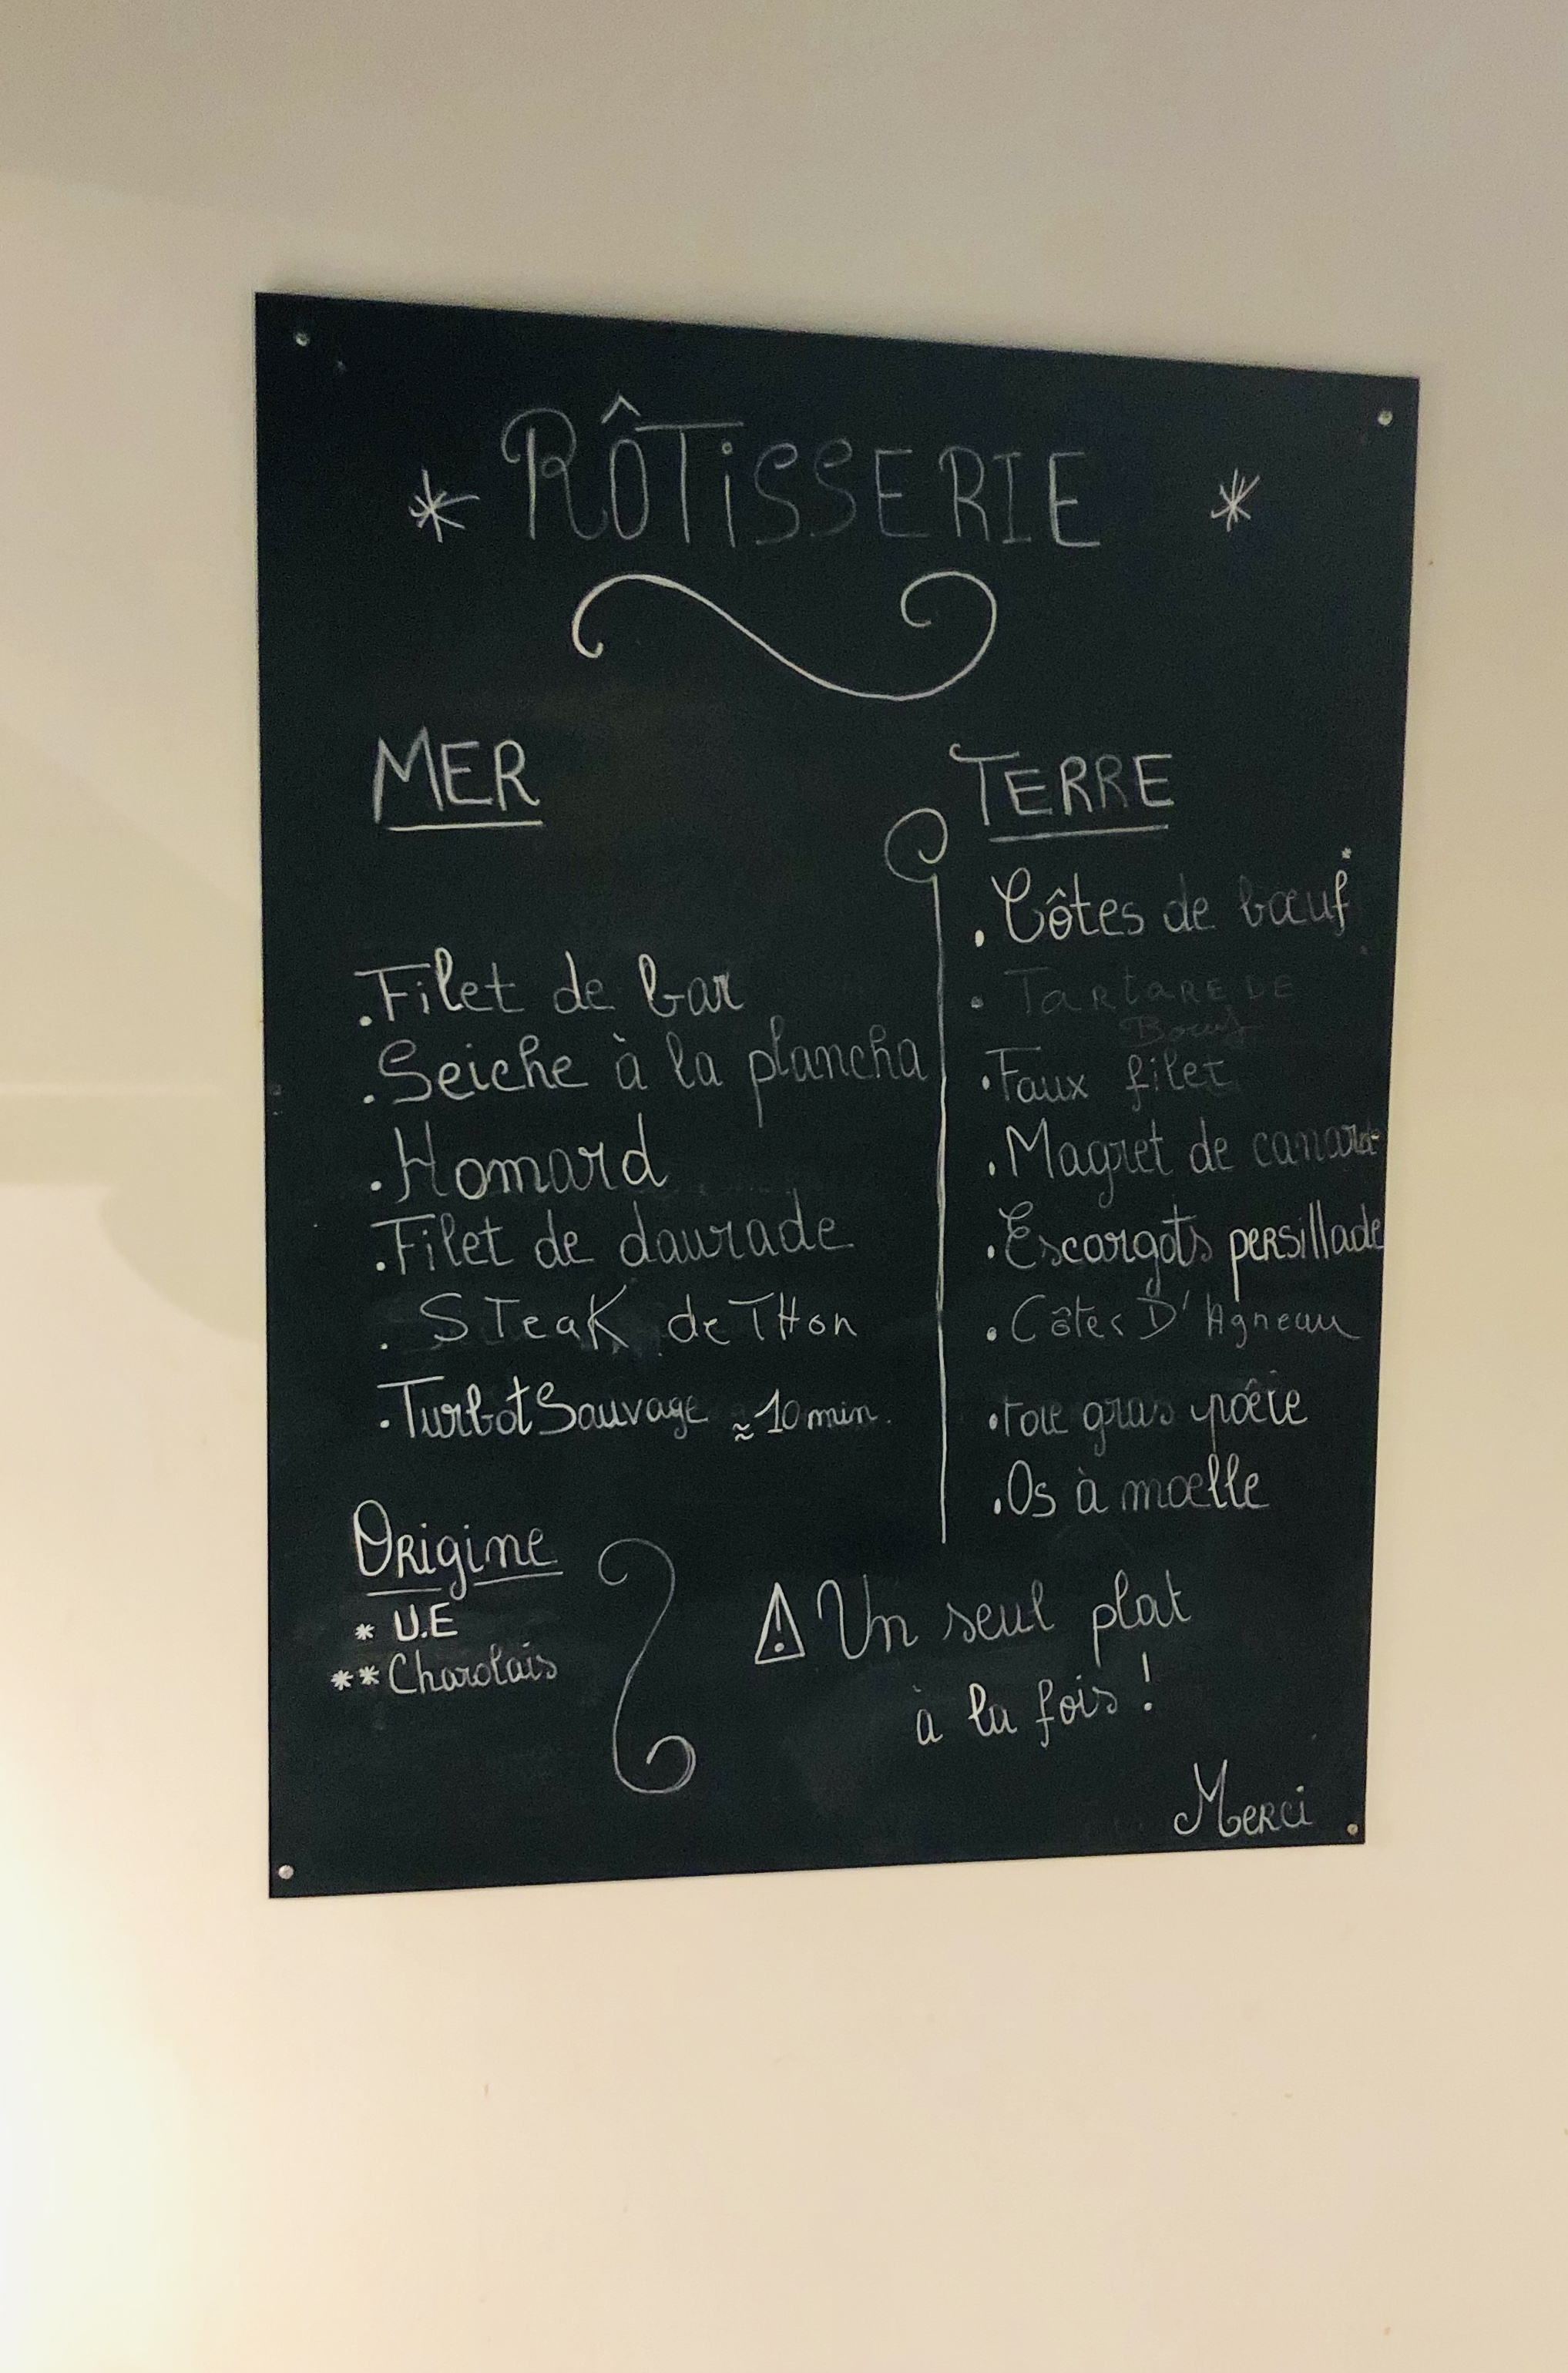 * RÔTiSSERIE *
MER
. Filet de bar
. Seiche à la plancha
. Homard
. Filet de daurade
. STeaK de THon
. Turbot Sauvage ≈ 10 min.
TERRE
. Côtes de bœuf*
. TaRtaRE DE
Boeuf
. Faux filet
. Magret de canard
. Escargots persillade
. Côtes D'Agneau
. Foie gras poêle
. Os à moelle
Origine
* U.E
** Charolais
⚠ Un seul plat
à la fois !
Merci